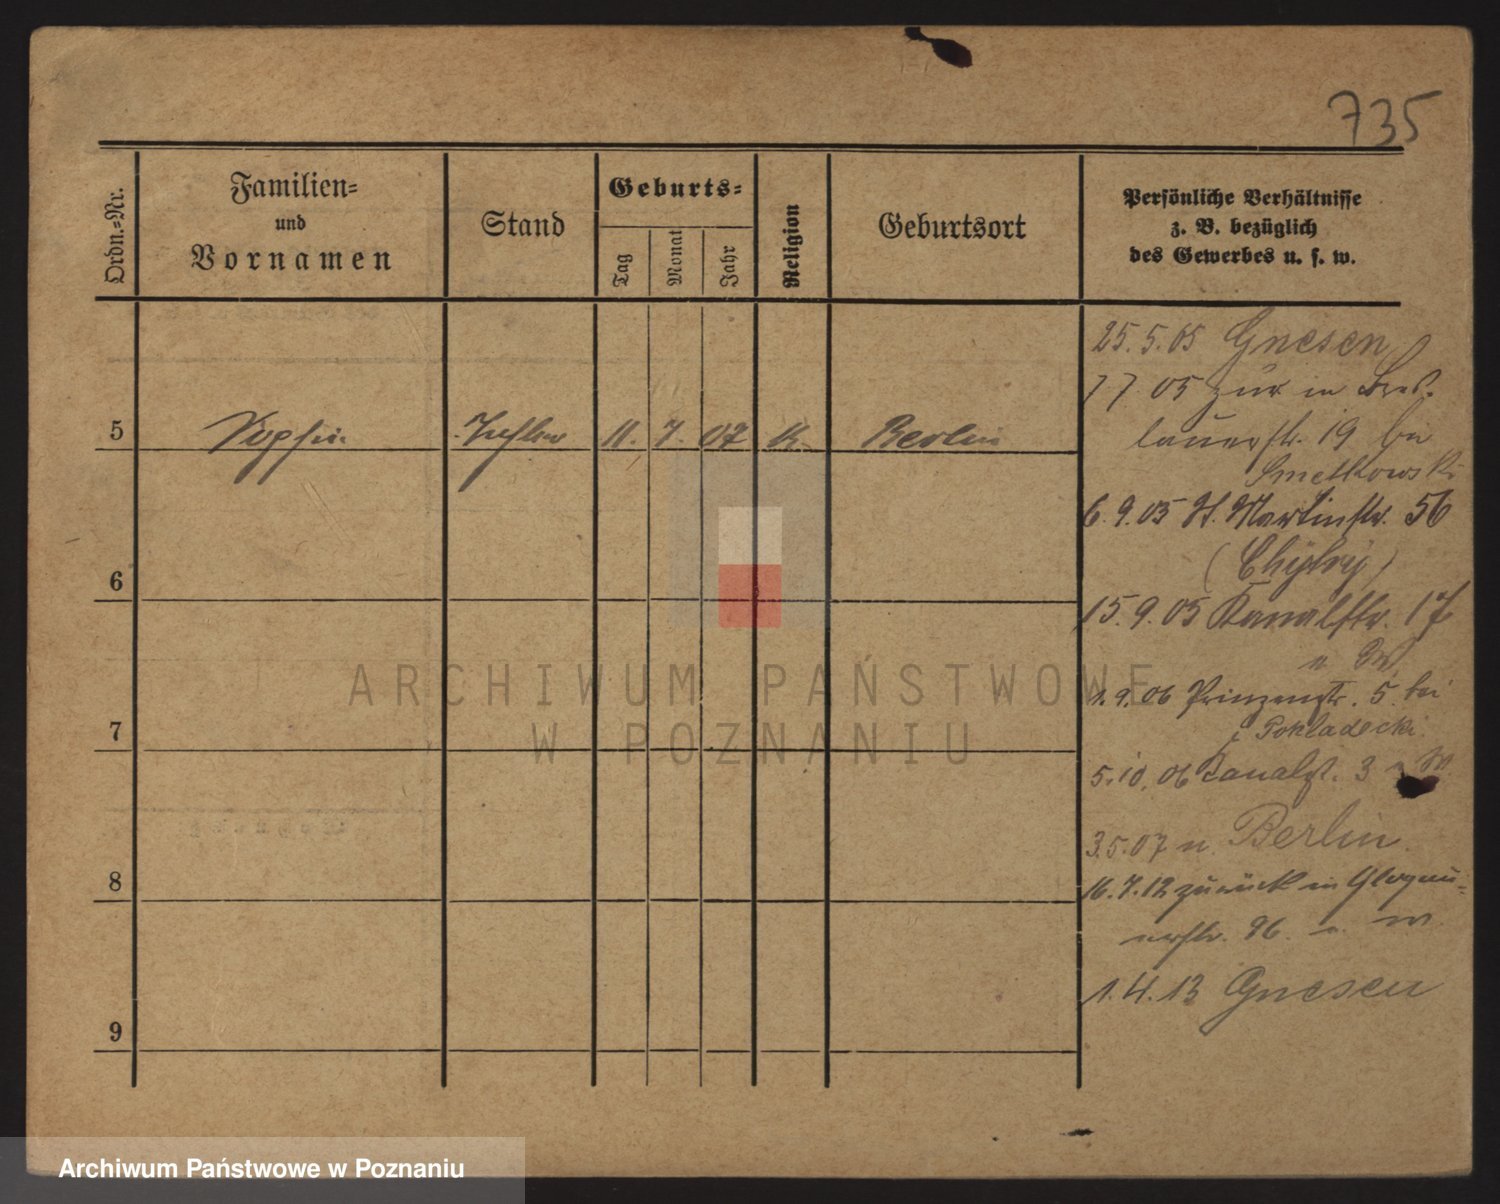 735
Ordn.=Nr.
Familien=
und
Vornamen
Stand
Geburts=
Tag
Monat
Jahr
Religion
Geburtsort
Persönliche Verhältnisse
z. B. bezüglich
des Gewerbes u. s. w.
5
Sophie
Tochter
11. 7. 07
K.
Berlin
6
7
8
9
25.5.05 Gnesen
7 7. 05 zur in Bres-
lauerstr. 19 bei
Smetkowski
6.9.05 St. Martinstr. 56
15.9.05 Kanalstr. 17
1.9.06 Prinzenstr. 5 bei
Pohladecki
5.10.06 Kanalst. 3
3.5.07 n. Berlin.
16.7.12 zurück in Glogau-
erstr. 96.
1.4.13 Gnesen
ARCHIWUM PAŃSTWOWE
W POZNANIU
Archiwum Państwowe w Poznaniu